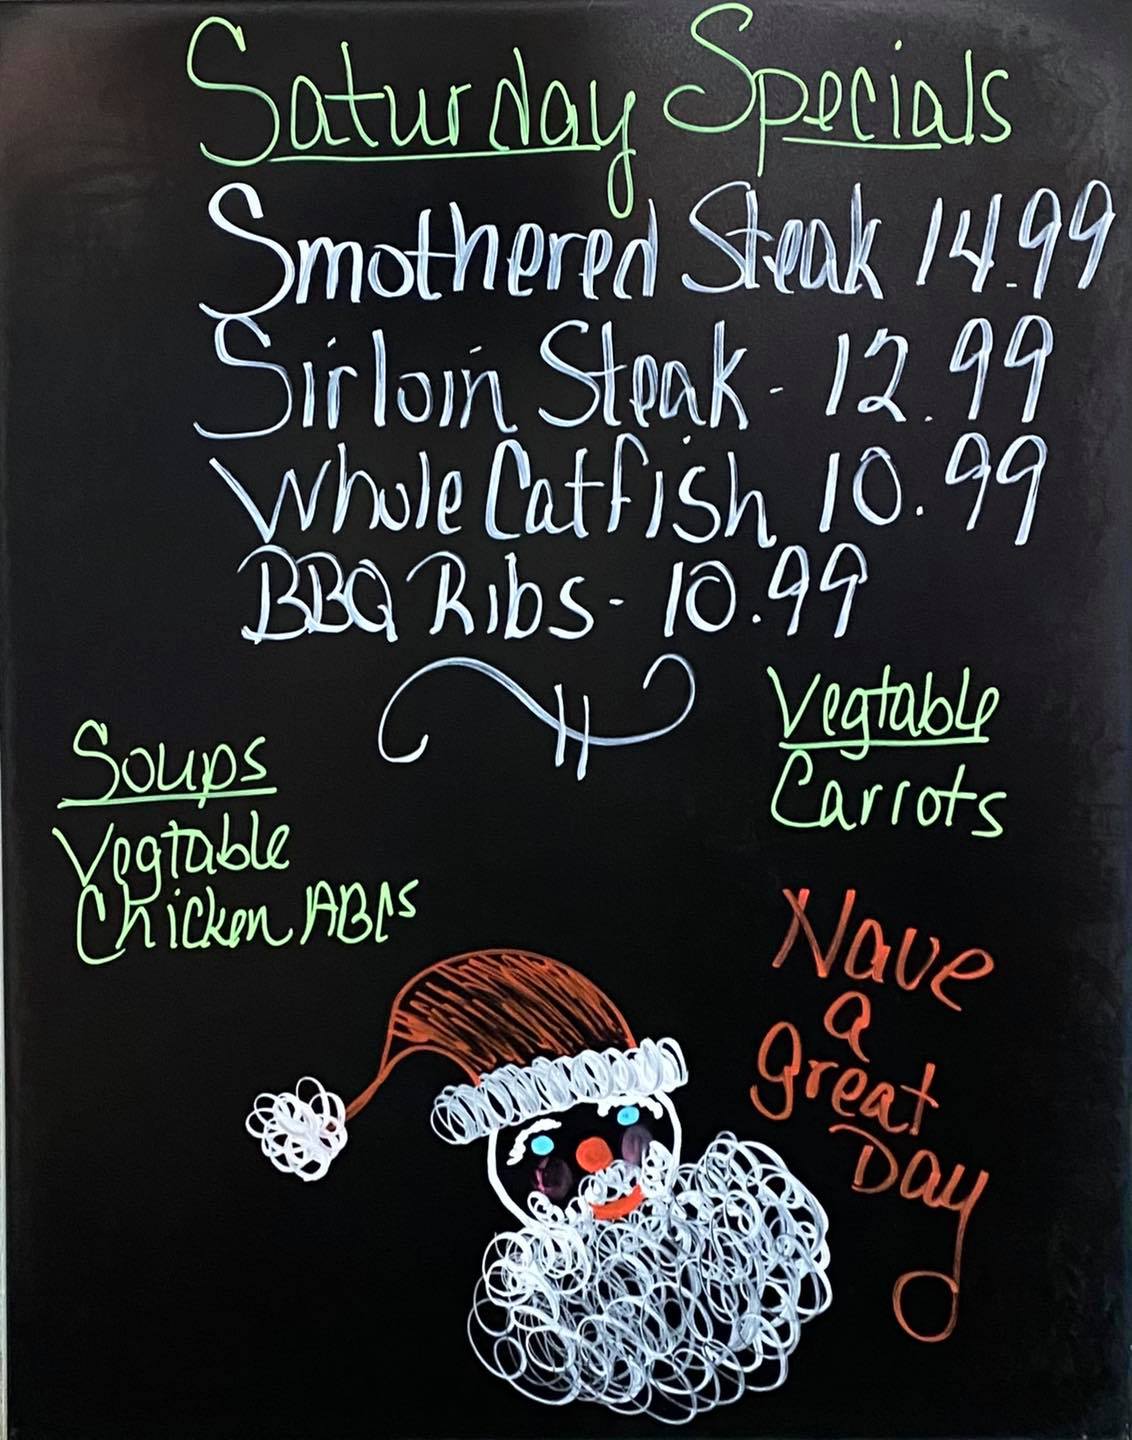 Saturday Specials
Smothered Steak 14.99
Sirloin Steak - 12.99
Whole Catfish 10.99
BBQ Ribs - 10.99
Soups
Vegtable
Chicken ABCs
Vegtable
Carrots
Have
a
great
Day